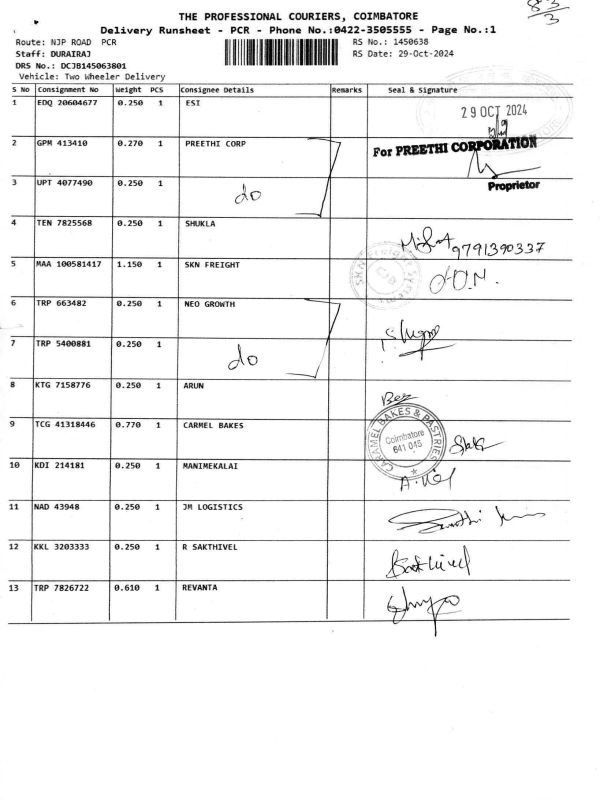 THE PROFESSIONAL COURIERS, COIMBATORE
Delivery Runsheet - PCR - Phone No.:0422-3505555 - Page No.:1
Route: NJP ROAD PCR RS No.: 1450638
Staff: DURAIRAJ RS Date: 29-Oct-2024
DRS No.: DCJB145063801
Vehicle: Two Wheeler Delivery
S No Consignment No Weight PCS Consignee Details Remarks Seal & Signature
1 EDQ 20604677 0.250 1 ESI
29 OCT 2024
2 GPM 413410 0.270 1 PREETHI CORP
For PREETHI CORPORATION
Proprietor
3 UPT 4077490 0.250 1
do
4 TEN 7825568 0.250 1 SHUKLA
9791390337
5 MAA 100581417 1.150 1 SKN FREIGHT
6 TRP 663482 0.250 1 NEO GROWTH
7 TRP 5400881 0.250 1
do
8 KTG 7158776 0.250 1 ARUN
9 TCG 41318446 0.770 1 CARMEL BAKES
CARAMEL BAKES & PASTRIES
Coimbatore
641 045
10 KDI 214181 0.250 1 MANIMEKALAI
11 NAD 43948 0.250 1 JM LOGISTICS
12 KKL 3203333 0.250 1 R SAKTHIVEL
Sakthivel
13 TRP 7826722 0.610 1 REVANTA